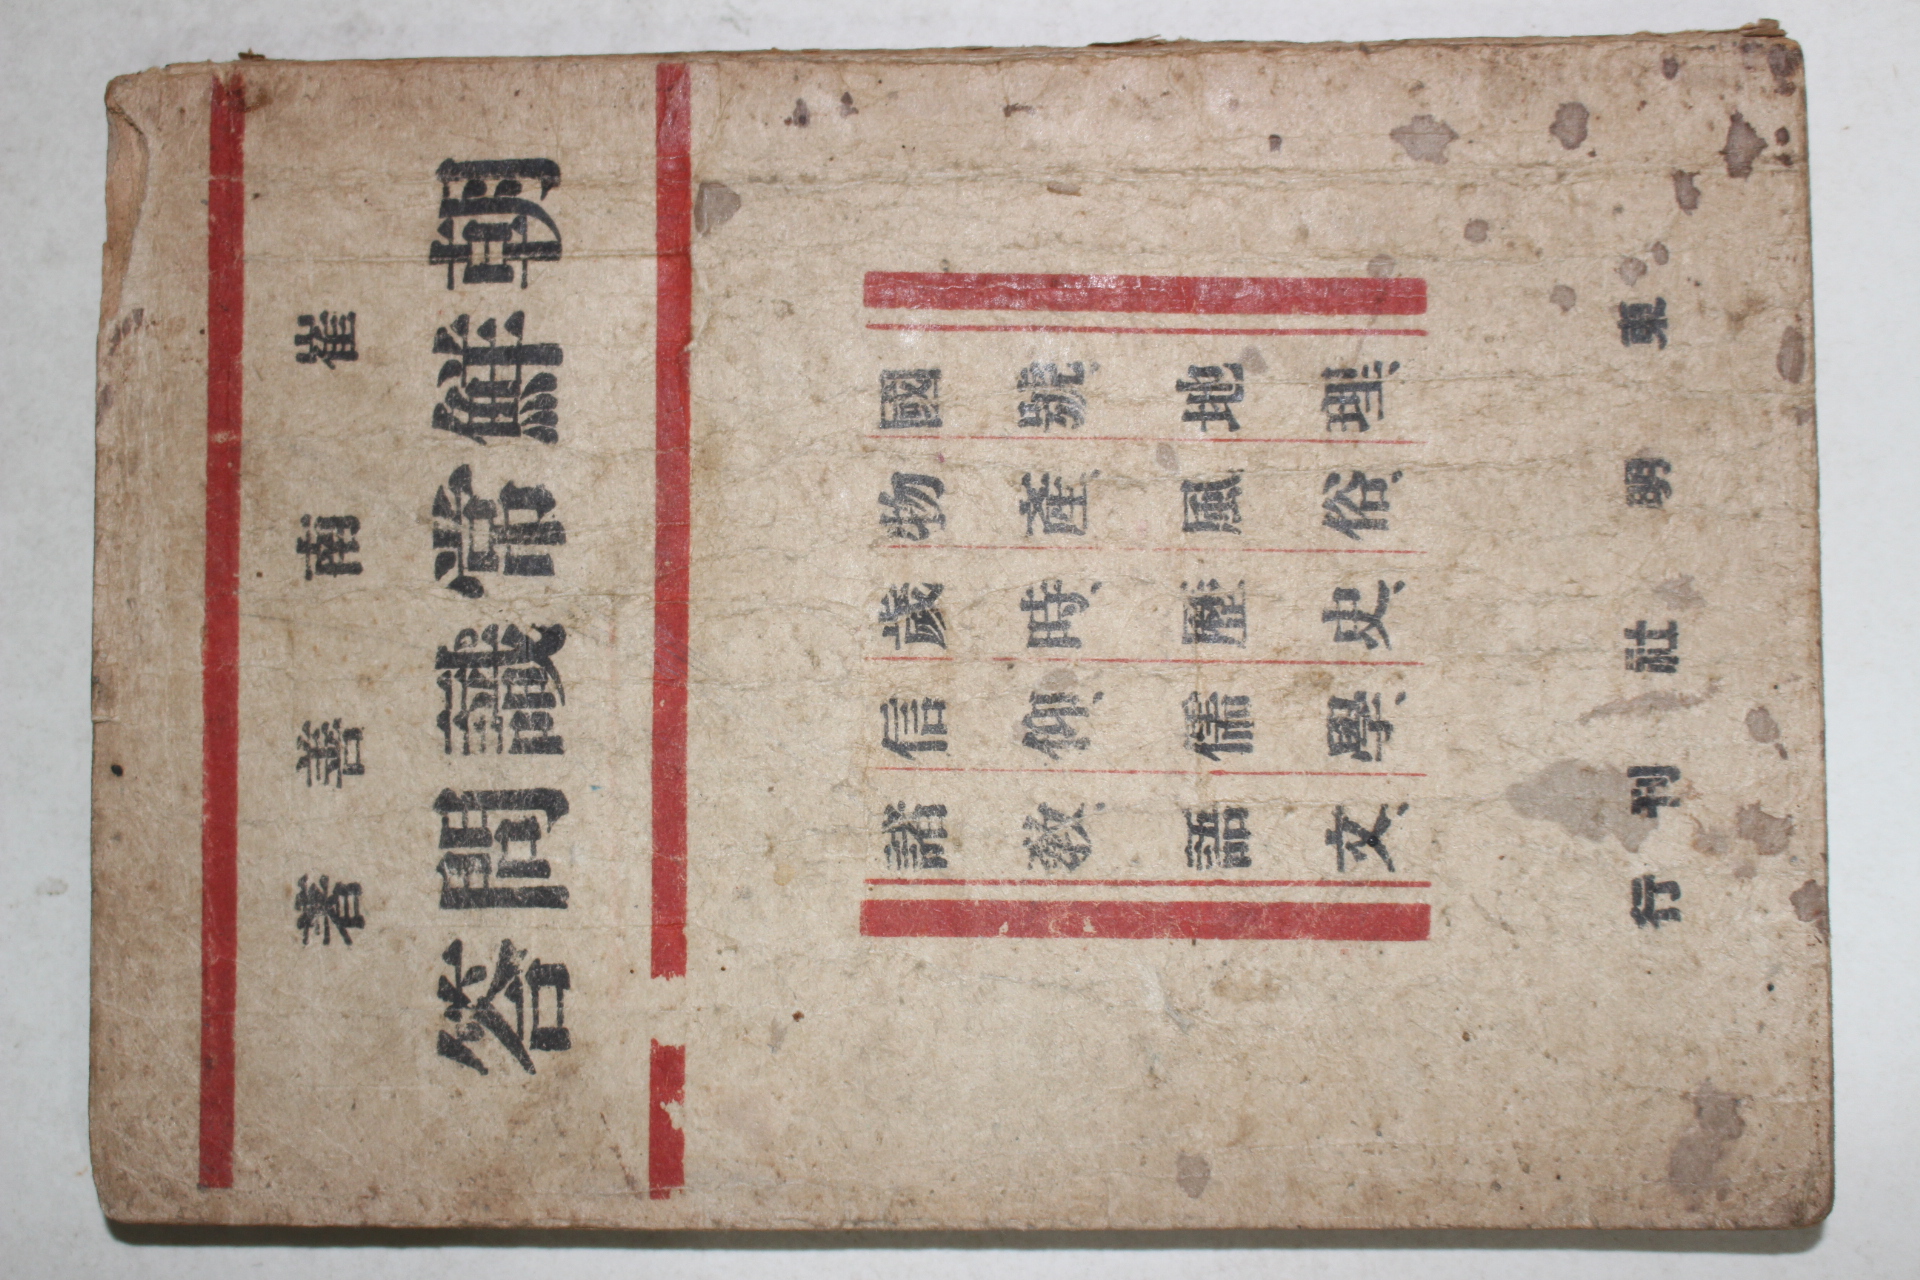 崔南善著
朝鮮常識問答
國號、地理、
物產、風俗、
歲時、歷史、
信仰、儒學、
諸敎、語文、
東明社刊行